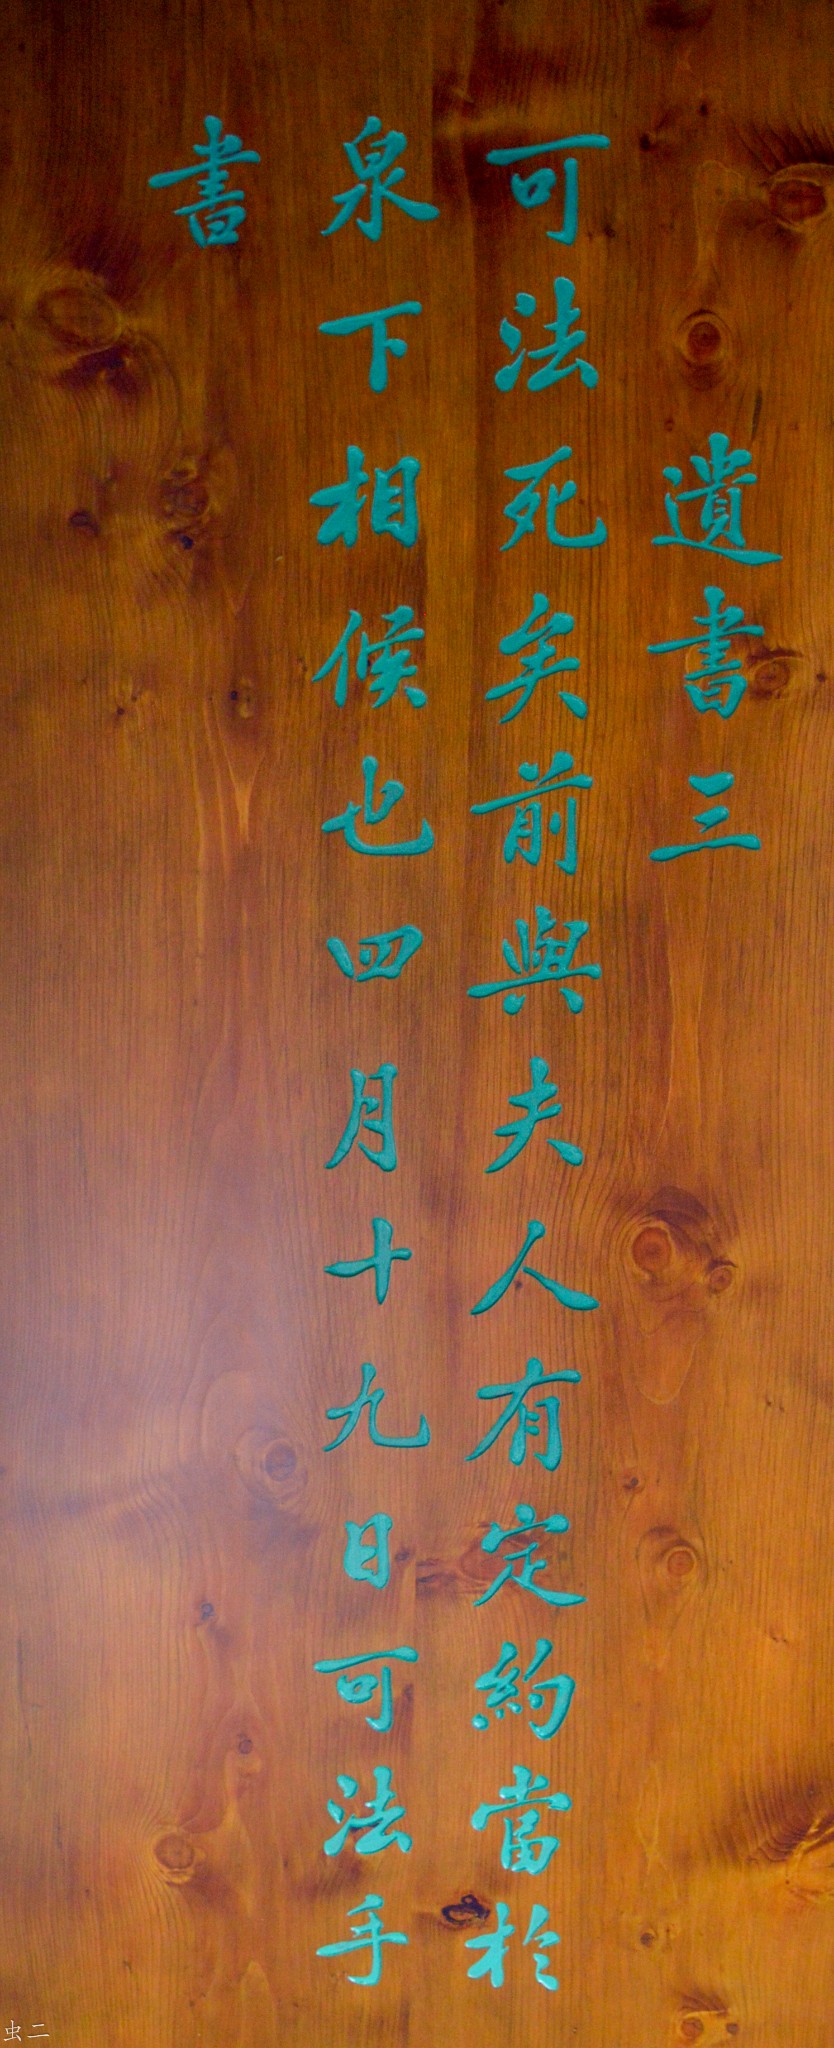 遺書三
可法死矣前與夫人有定約當於
泉下相候也四月十九日可法手
書
虫二